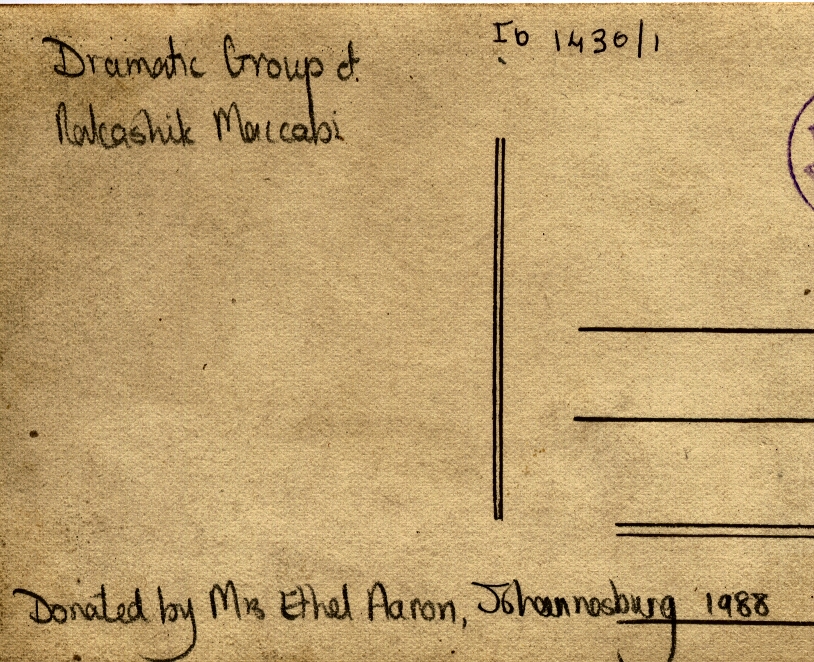 Ib 1430/1
Dramatic Group of
Rokashik Maccabi
Donated by Mrs Ethel Aaron, Johannesburg 1988